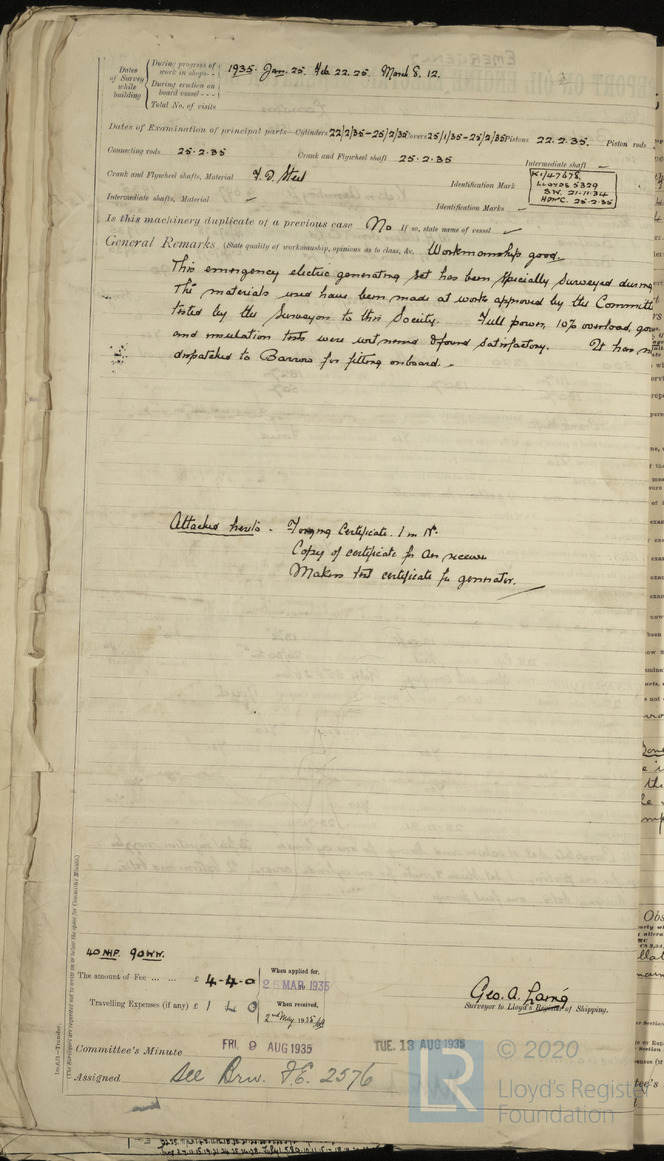 Dates of Survey while building
During progress of work in shops - - 1935. Jan. 25. Feb. 22. 25. March 8. 12.
During erection on board vessel - - -
Total No. of visits
Dates of Examination of principal parts—Cylinders 22/2/35-25/2/35 Covers 25/1/35-25/2/35 Pistons 22.2.35. Piston rods
Connecting rods 25.2.35 Crank and Flywheel shaft 25.2.35 Intermediate shaft
Crank and Flywheel shafts, Material F.D. Steel Identification Mark
K1/47678.
LLOYDS 5329
S.W. 21-11-34
25-2-35
Intermediate shafts, Material - Identification Marks
Is this machinery duplicate of a previous case No If so, state name of vessel
General Remarks (State quality of workmanship, opinions as to class, &c. Workmanship good.
This emergency electric generating set has been specially surveyed during
The materials used have been made at works approved by the Committe
tested by the Surveyors to this Society. Full power, 10% overload, gov
and insulation tests were witnessed & found satisfactory. It has n
dispatched to Barrow for fitting onboard. -
Attached hereto - Forging Certificate. 1 in No.
Copy of certificate for air receiver
Makers test certificate for generator.
40 NHP. 90 KW.
The amount of Fee ... ... £ 4-4-0
When applied for, 26 MAR 1935
Travelling Expenses (if any) £ 1 4 0
When received, 2nd May 1935
Geo. A. Laing
Surveyor to Lloyd's Register of Shipping.
Committee's Minute FRI. 9 AUG 1935 TUE. 13 AUG 1935
Assigned See Brw. F.E. 2576
(The Surveyors are requested not to write on or below the space for Committee's Minute.)
LR
© 2020
Lloyd's Register
Foundation